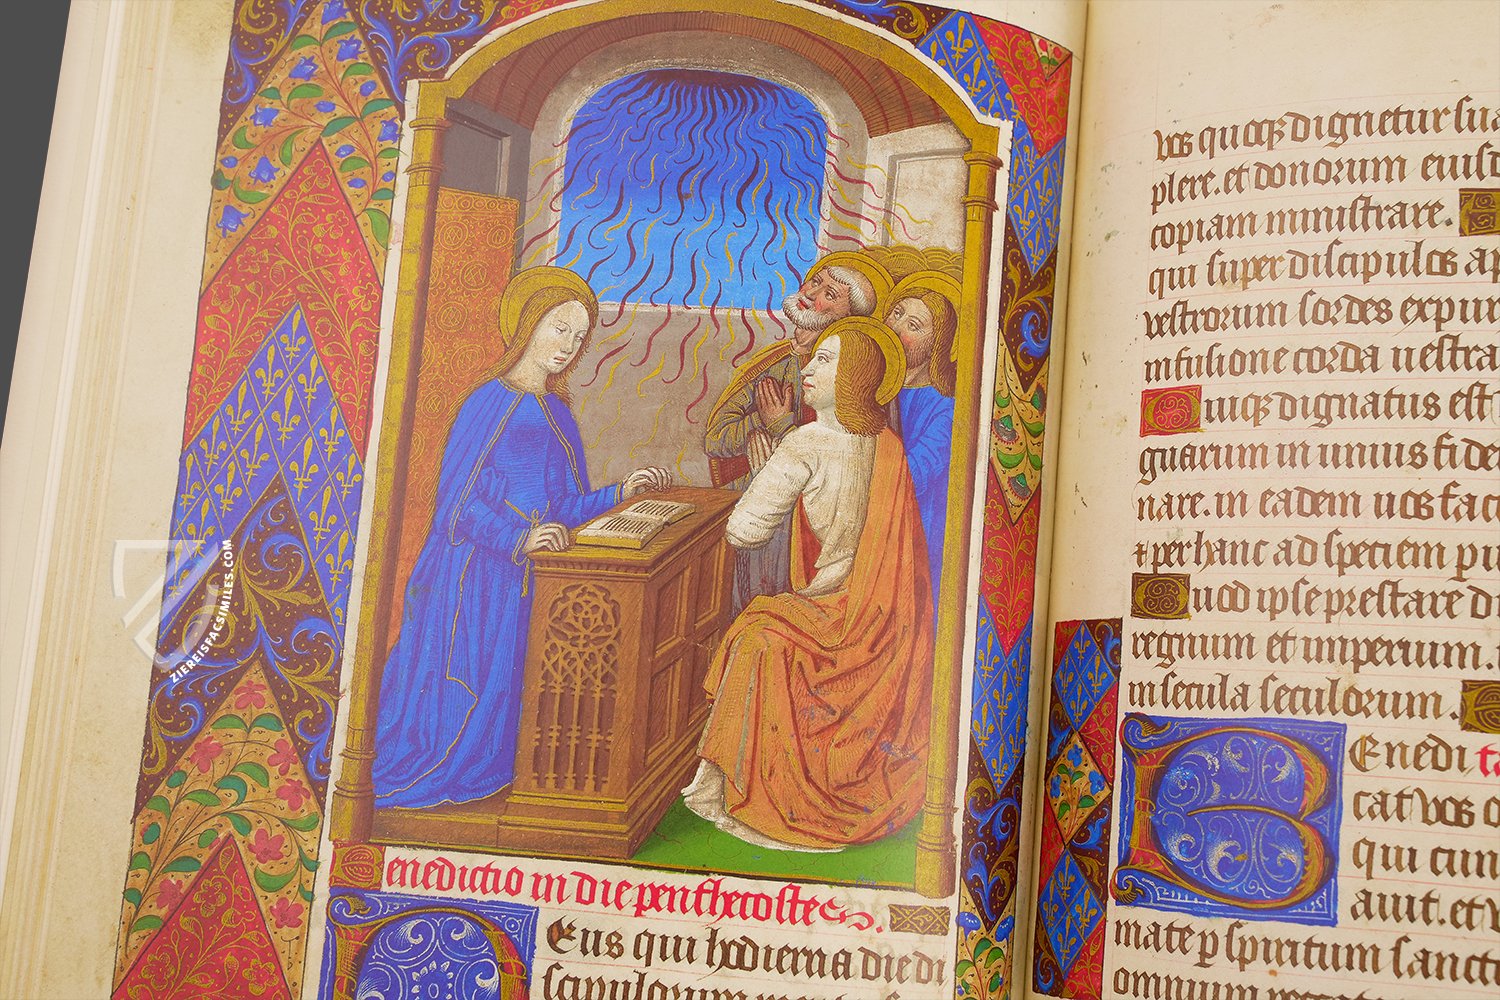 ZIEREISFACSIMILES.COM
Benedictio in die penthecostes.
Deus qui hodierna die di
scipulorum
vos quoq; dignetur sua
plere. et donorum eiusd
copiam ministrare.
qui super discipulos ap
vestrorum sordes expur
infusione corda uestra
Quiq; dignatus est
guarum in unius fide
nare. in eadem uos faci
& per hanc ad speciem pu
Quod ipse prestare di
regnum et imperium.
in secula seculorum.
Benedi
cat vos o
qui cun
auit. et v
mate p spiritum sanct
omnium